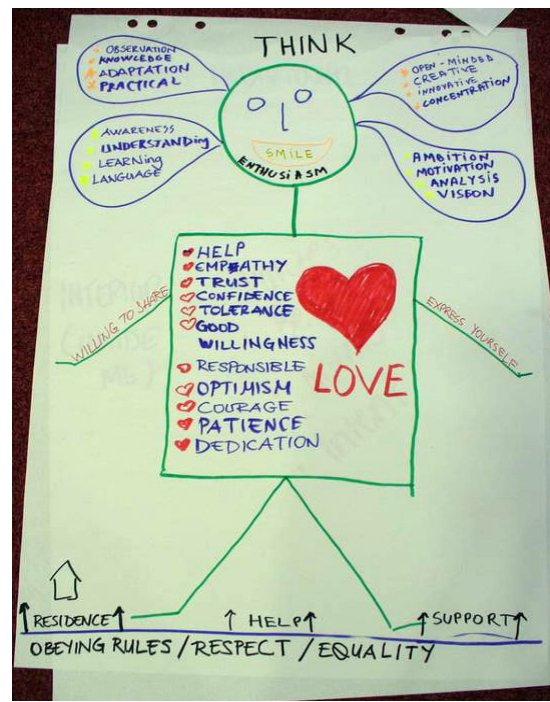 THINK
OBSERVATION
KNOWLEDGE
ADAPTATION
PRACTICAL
OPEN-MINDED
CREATIVE
INNOVATIVE
CONCENTRATION
AWARENESS
UNDERSTANDING
LEARNING
LANGUAGE
AMBITION
MOTIVATION
ANALYSIS
VISION
SMILE
ENTHUSIASM
HELP
EMPATHY
TRUST
CONFIDENCE
TOLERANCE
GOOD
WILLINGNESS
RESPONSIBLE
OPTIMISM
COURAGE
PATIENCE
DEDICATION
LOVE
WILLING TO SHARE
EXPRESS YOURSELF
RESIDENCE
HELP
SUPPORT
OBEYING RULES / RESPECT / EQUALITY